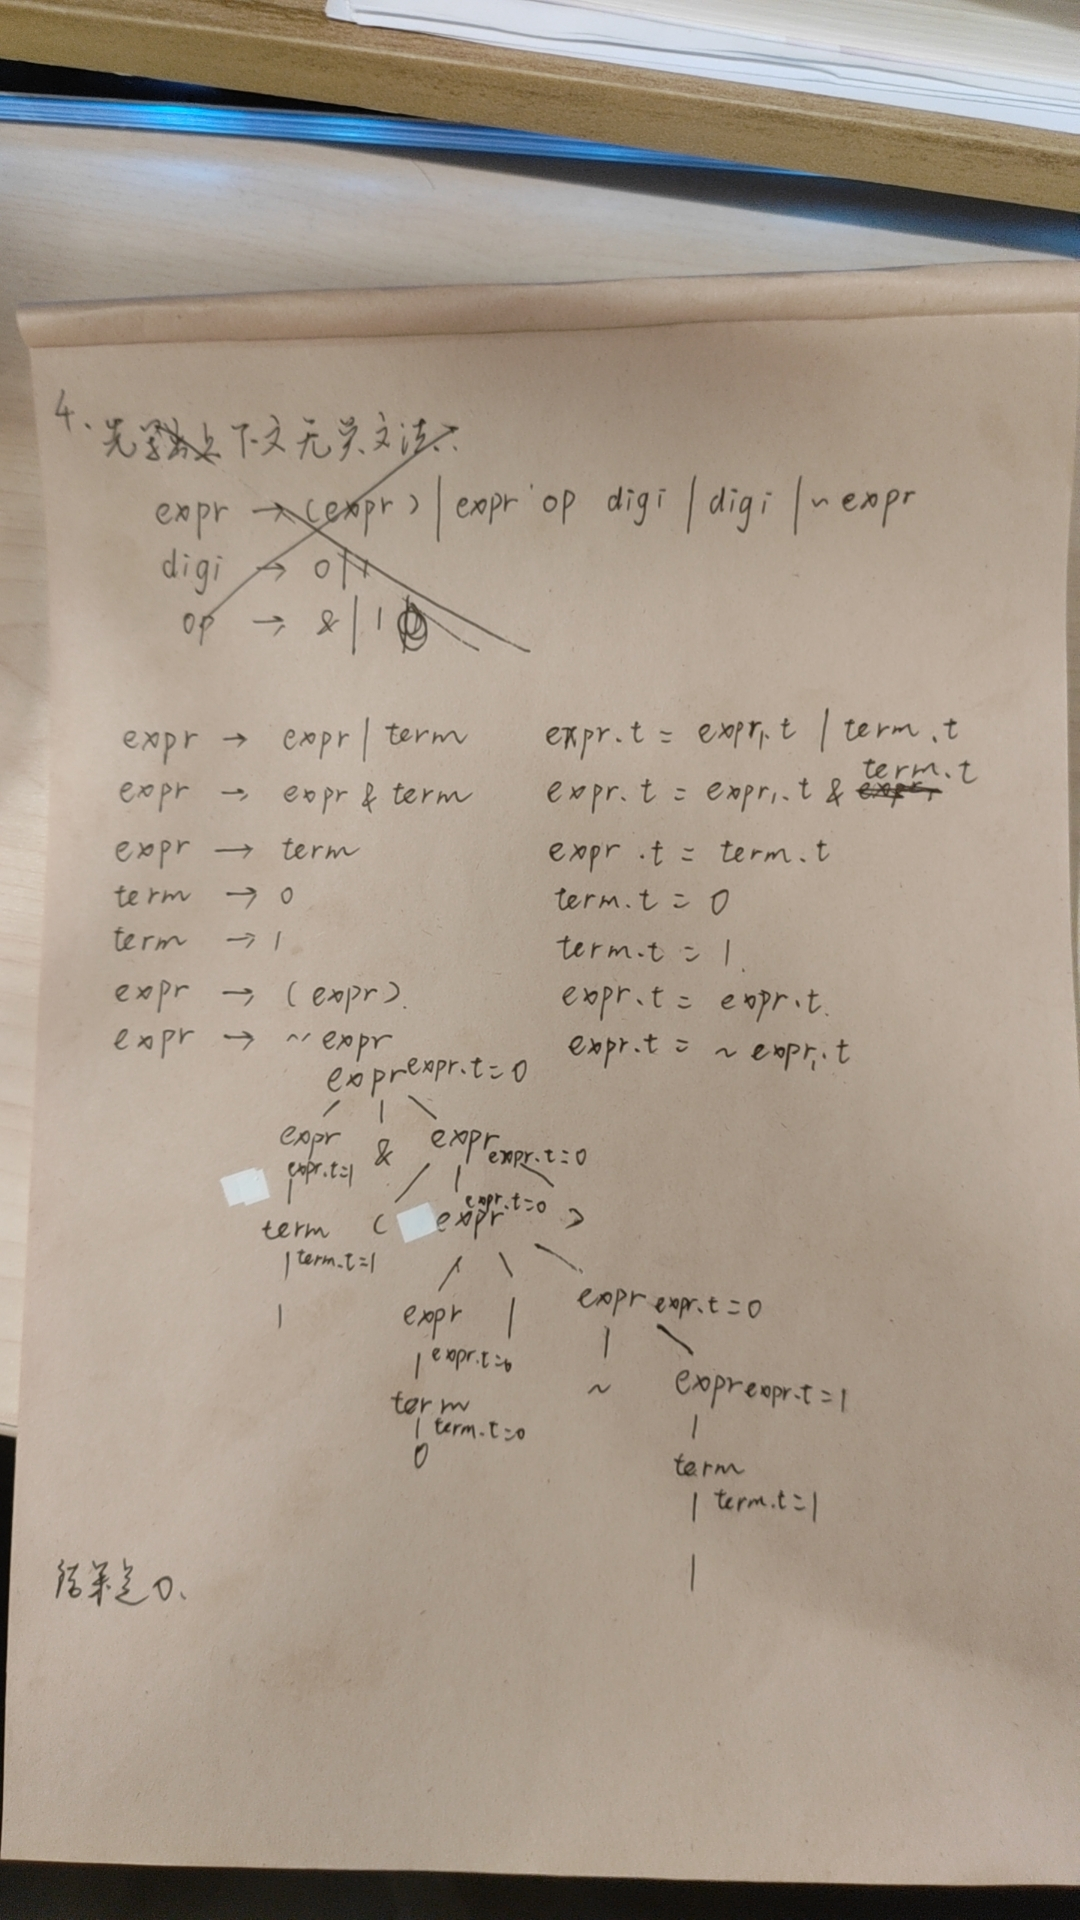 4. 先写出上下文无关文法:
expr → (expr) | expr op digi | digi | ~ expr
digi → 0 | 1
op → & | |
expr → expr | term expr.t = expr₁.t | term.t
expr → expr & term expr.t = expr₁.t & term.t
expr → term expr.t = term.t
term → 0 term.t = 0
term → 1 term.t = 1.
expr → (expr). expr.t = expr.t.
expr → ~ expr expr.t = ~ expr₁.t
expr expr.t=0
expr & expr expr.t=0
expr.t=1
expr.t=0
term ( expr )
term.t=1
1 expr | expr expr.t=0
expr.t=0
~ expr expr.t=1
term
term.t=0
0
term
term.t=1
1
结果是0.